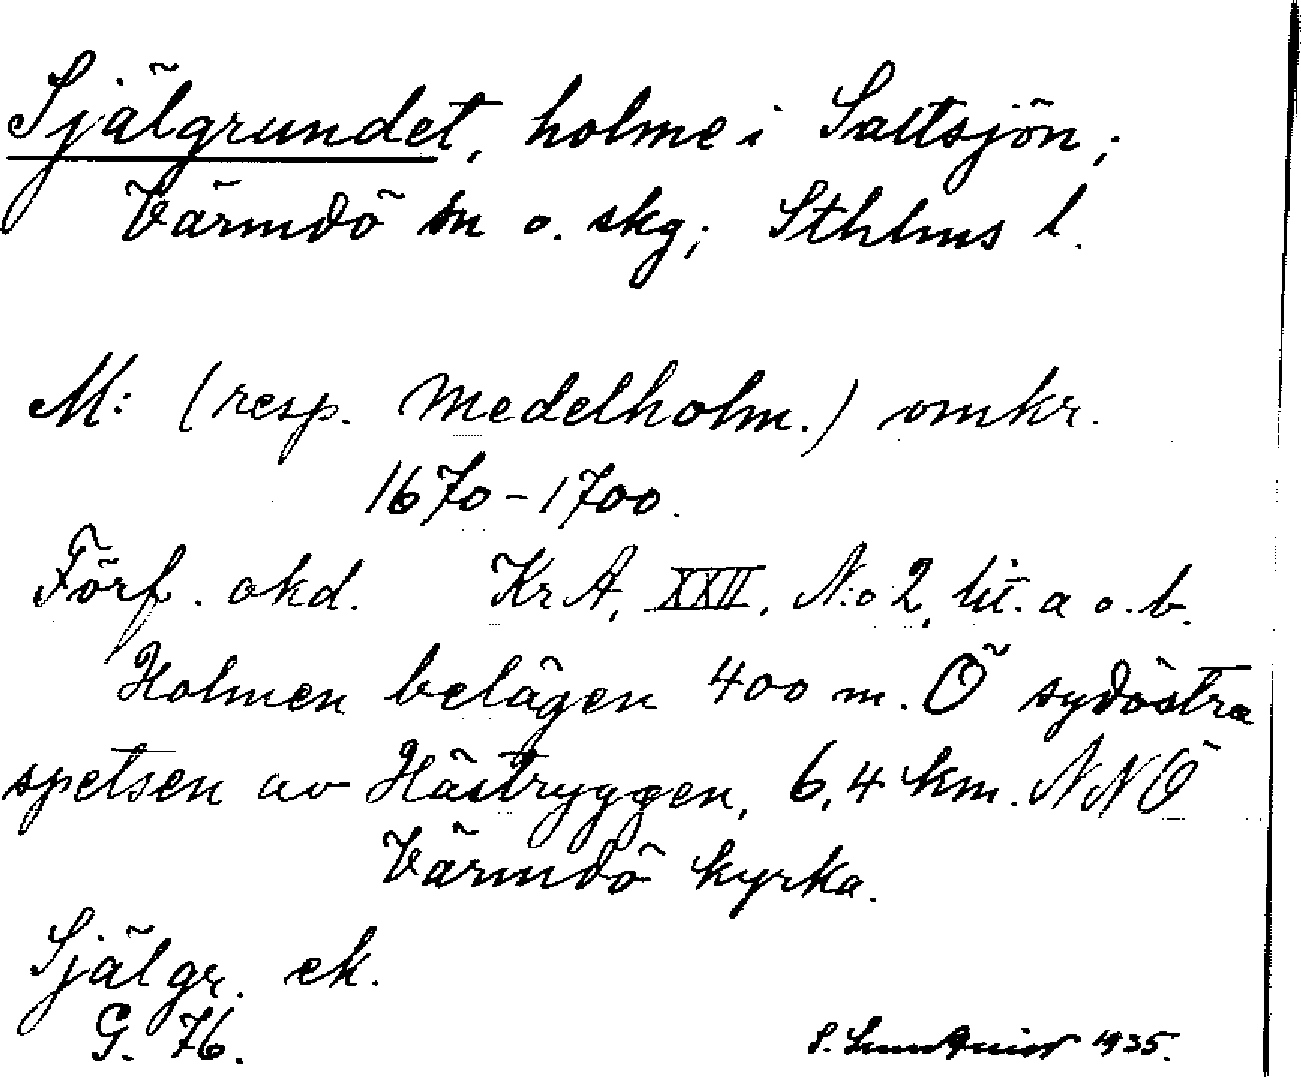 Själgrundet, holme i Saltsjön;
Värmdö sn o. skg; Sthlms l.
M: (resp. Medelholm.) omkr.
1670-1700.
Förf. okd. KrA, XXII, N:o 2, lit. a o. b.
Holmen belägen 400 m. Ö sydöstra
spetsen av Hästryggen, 6,4 km. NNÖ
Värmdö kyrka.
Själgr. ek.
G. 76.
S. Lundquist 1935.